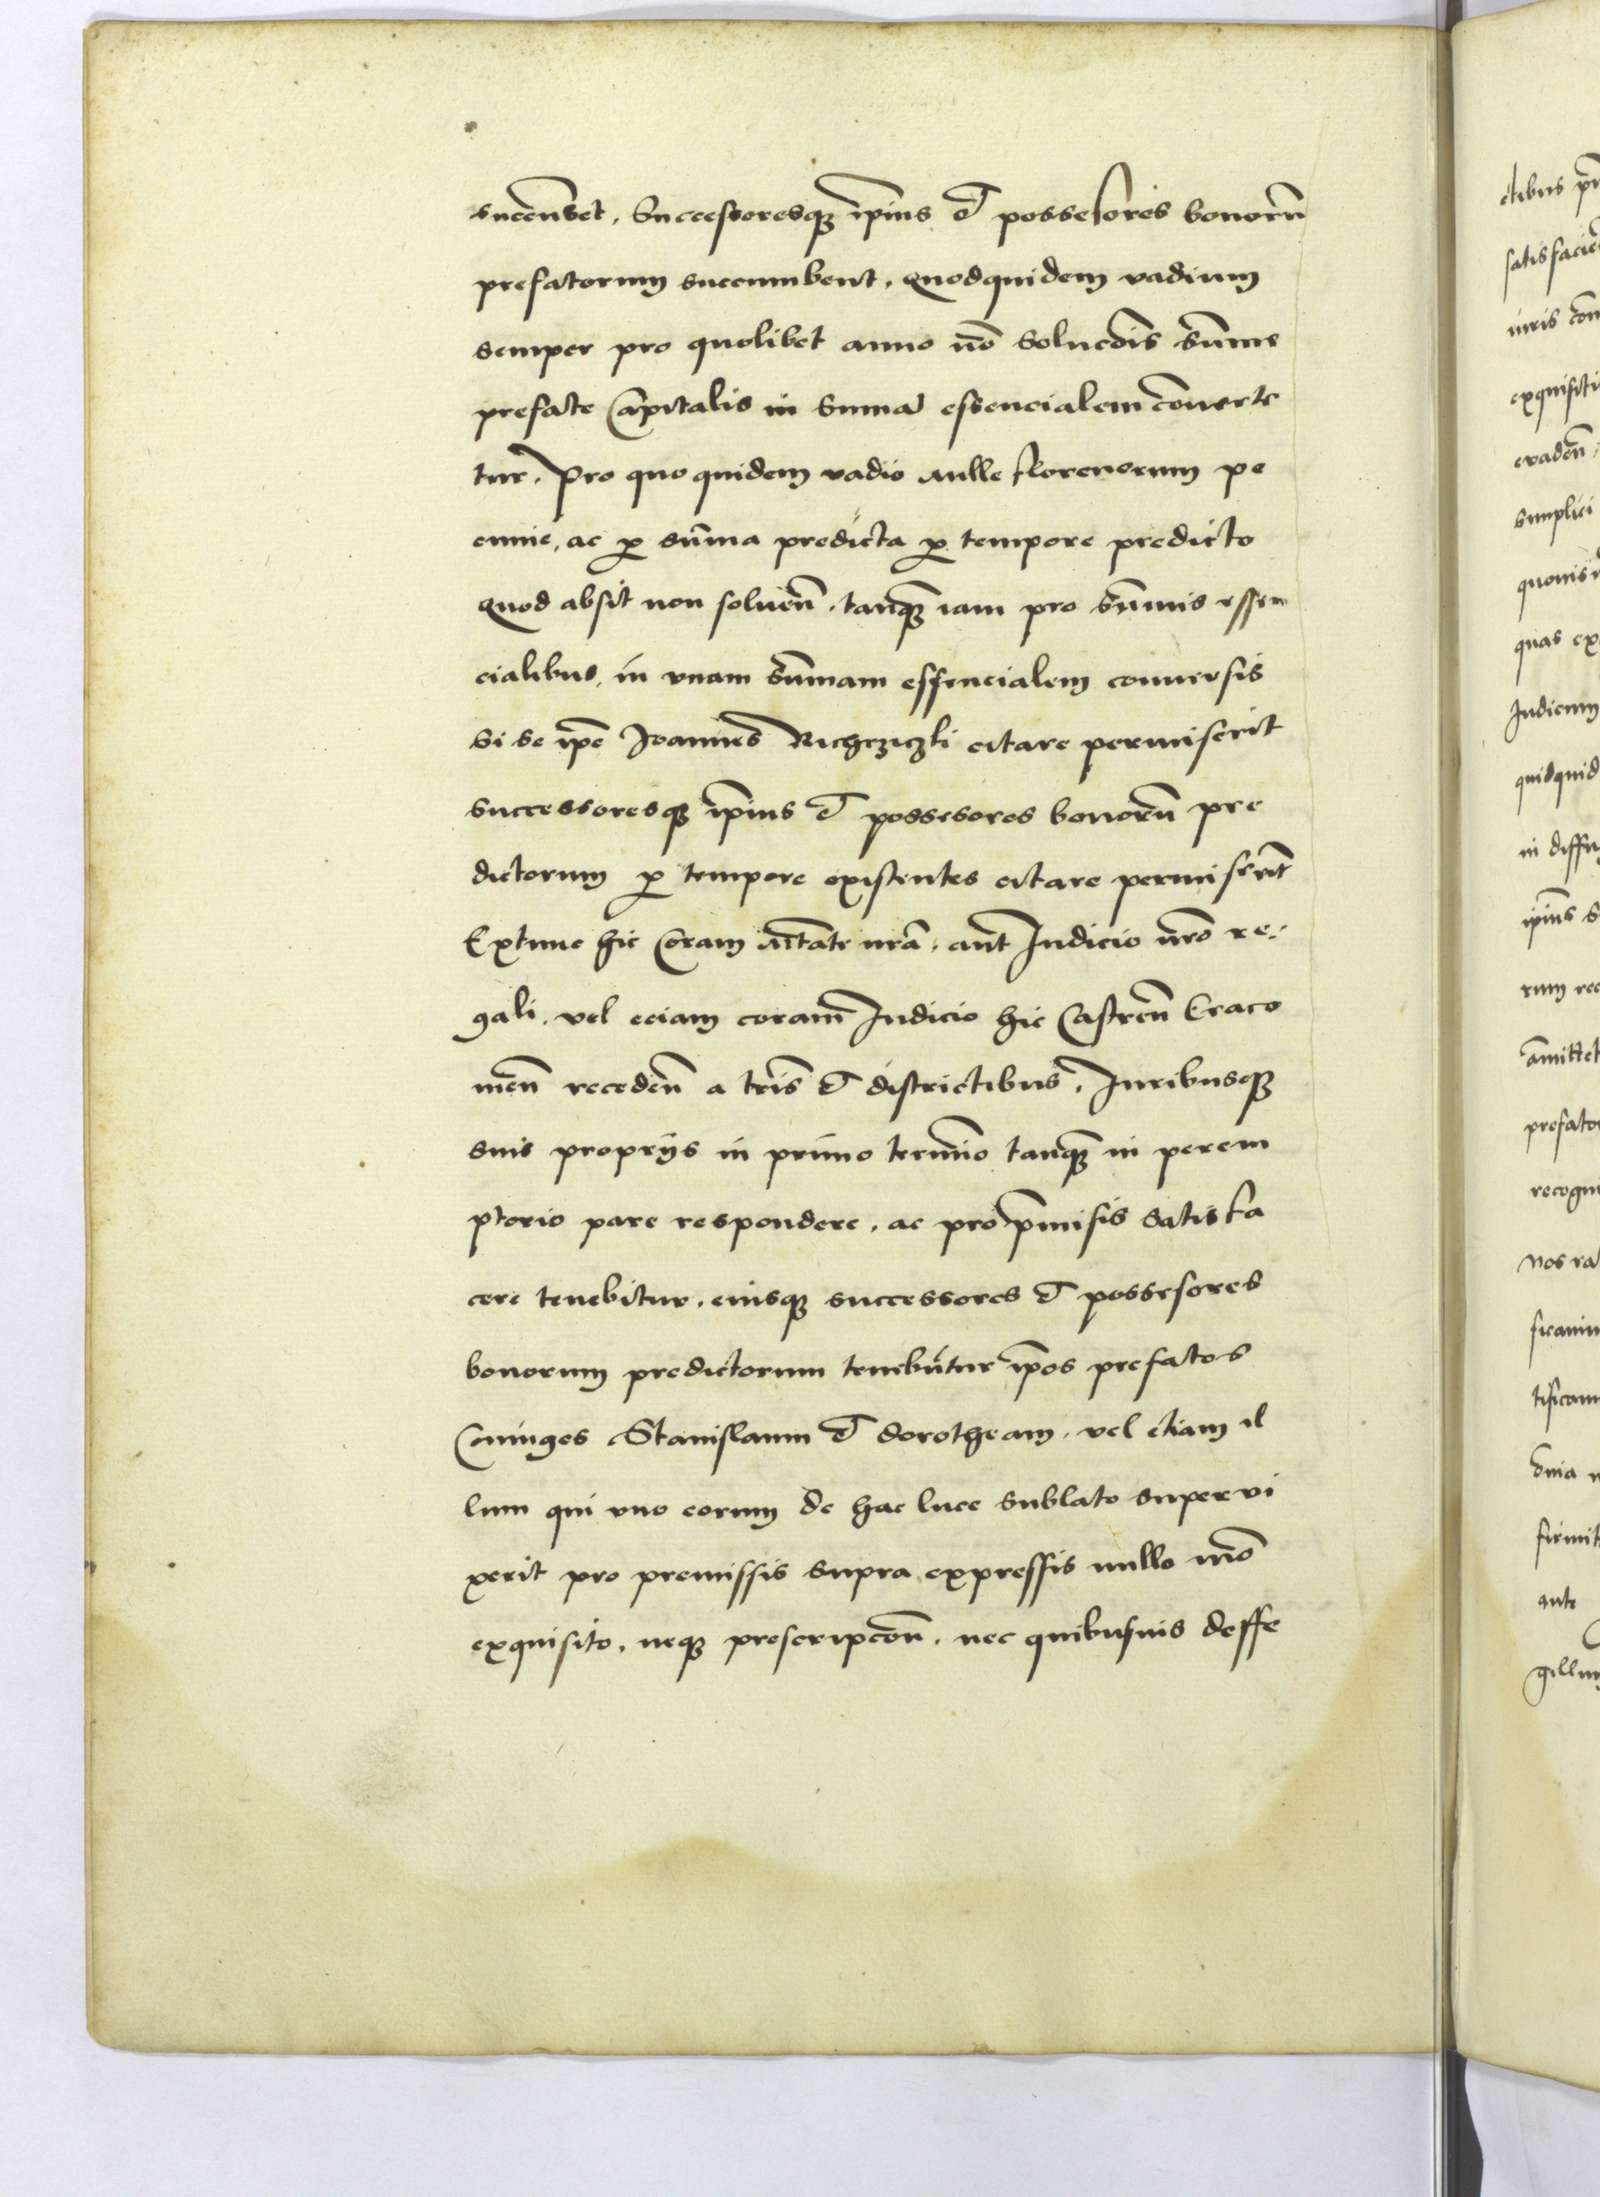 succu̅bet. Successoresq̃ ip̅ius et possessores bonoru̅
prefatorum succumbent. Quodquidem vadium
semper pro quolibet anno no̅ soluc̅ois su̅me
prefate Capitalis in suma̅ essencialem co̅uerte
tur. Pro quo quidem vadio mille florenorum pe
cunie. ac p̲ su̅ma predicta p̲ tempore predicto
Quod absit non soluen̅. tanq̃ iam pro su̅mis essen
cialibus. in vnam su̅mam essencialem conuersis
si se ip̅e Joannes citare permiserit
successoresq̃ ip̅ius et possesores bonoru̅ pre
dictorum p̲ tempore existentes citare permiseri̅t
Extunc hic Coram M̅tate n̅ra. aut Judicio n̅ro re:
gali. vel eciam coram Judicio hic Castren̅ Craco
uien̅ receden̅ a ter̅is et districtibus. Juribusq̃
suis proprijs in primo termi̅o tanq̃ in perem
ptorio pare respondere. ac pro p̅misis satisfa
cere tenebitur. eiusq̃ successores et possesores
bonorum predictorum tenebu̅tur ip̅os prefatos
Coniuges Stanislaum et dorotheam. vel etiam il
lum qui vno eorum de hac luce sublato supervi
xerit pro premissis supra expressis nullo mo̅
exquisito. neq̃ prescripcon̅. nec quibusuis deffe
ctibus
satisfacie̅
iuris
exquisiti
euaden̅
simplici
quouis
quas ex
Judicium
quidquid
in diffu
ip̅ius s
rum rec
a̅mittet
prefato
recogn
Nos ra
ficauim
tificam
o̅nia
firmit
ante
gillum